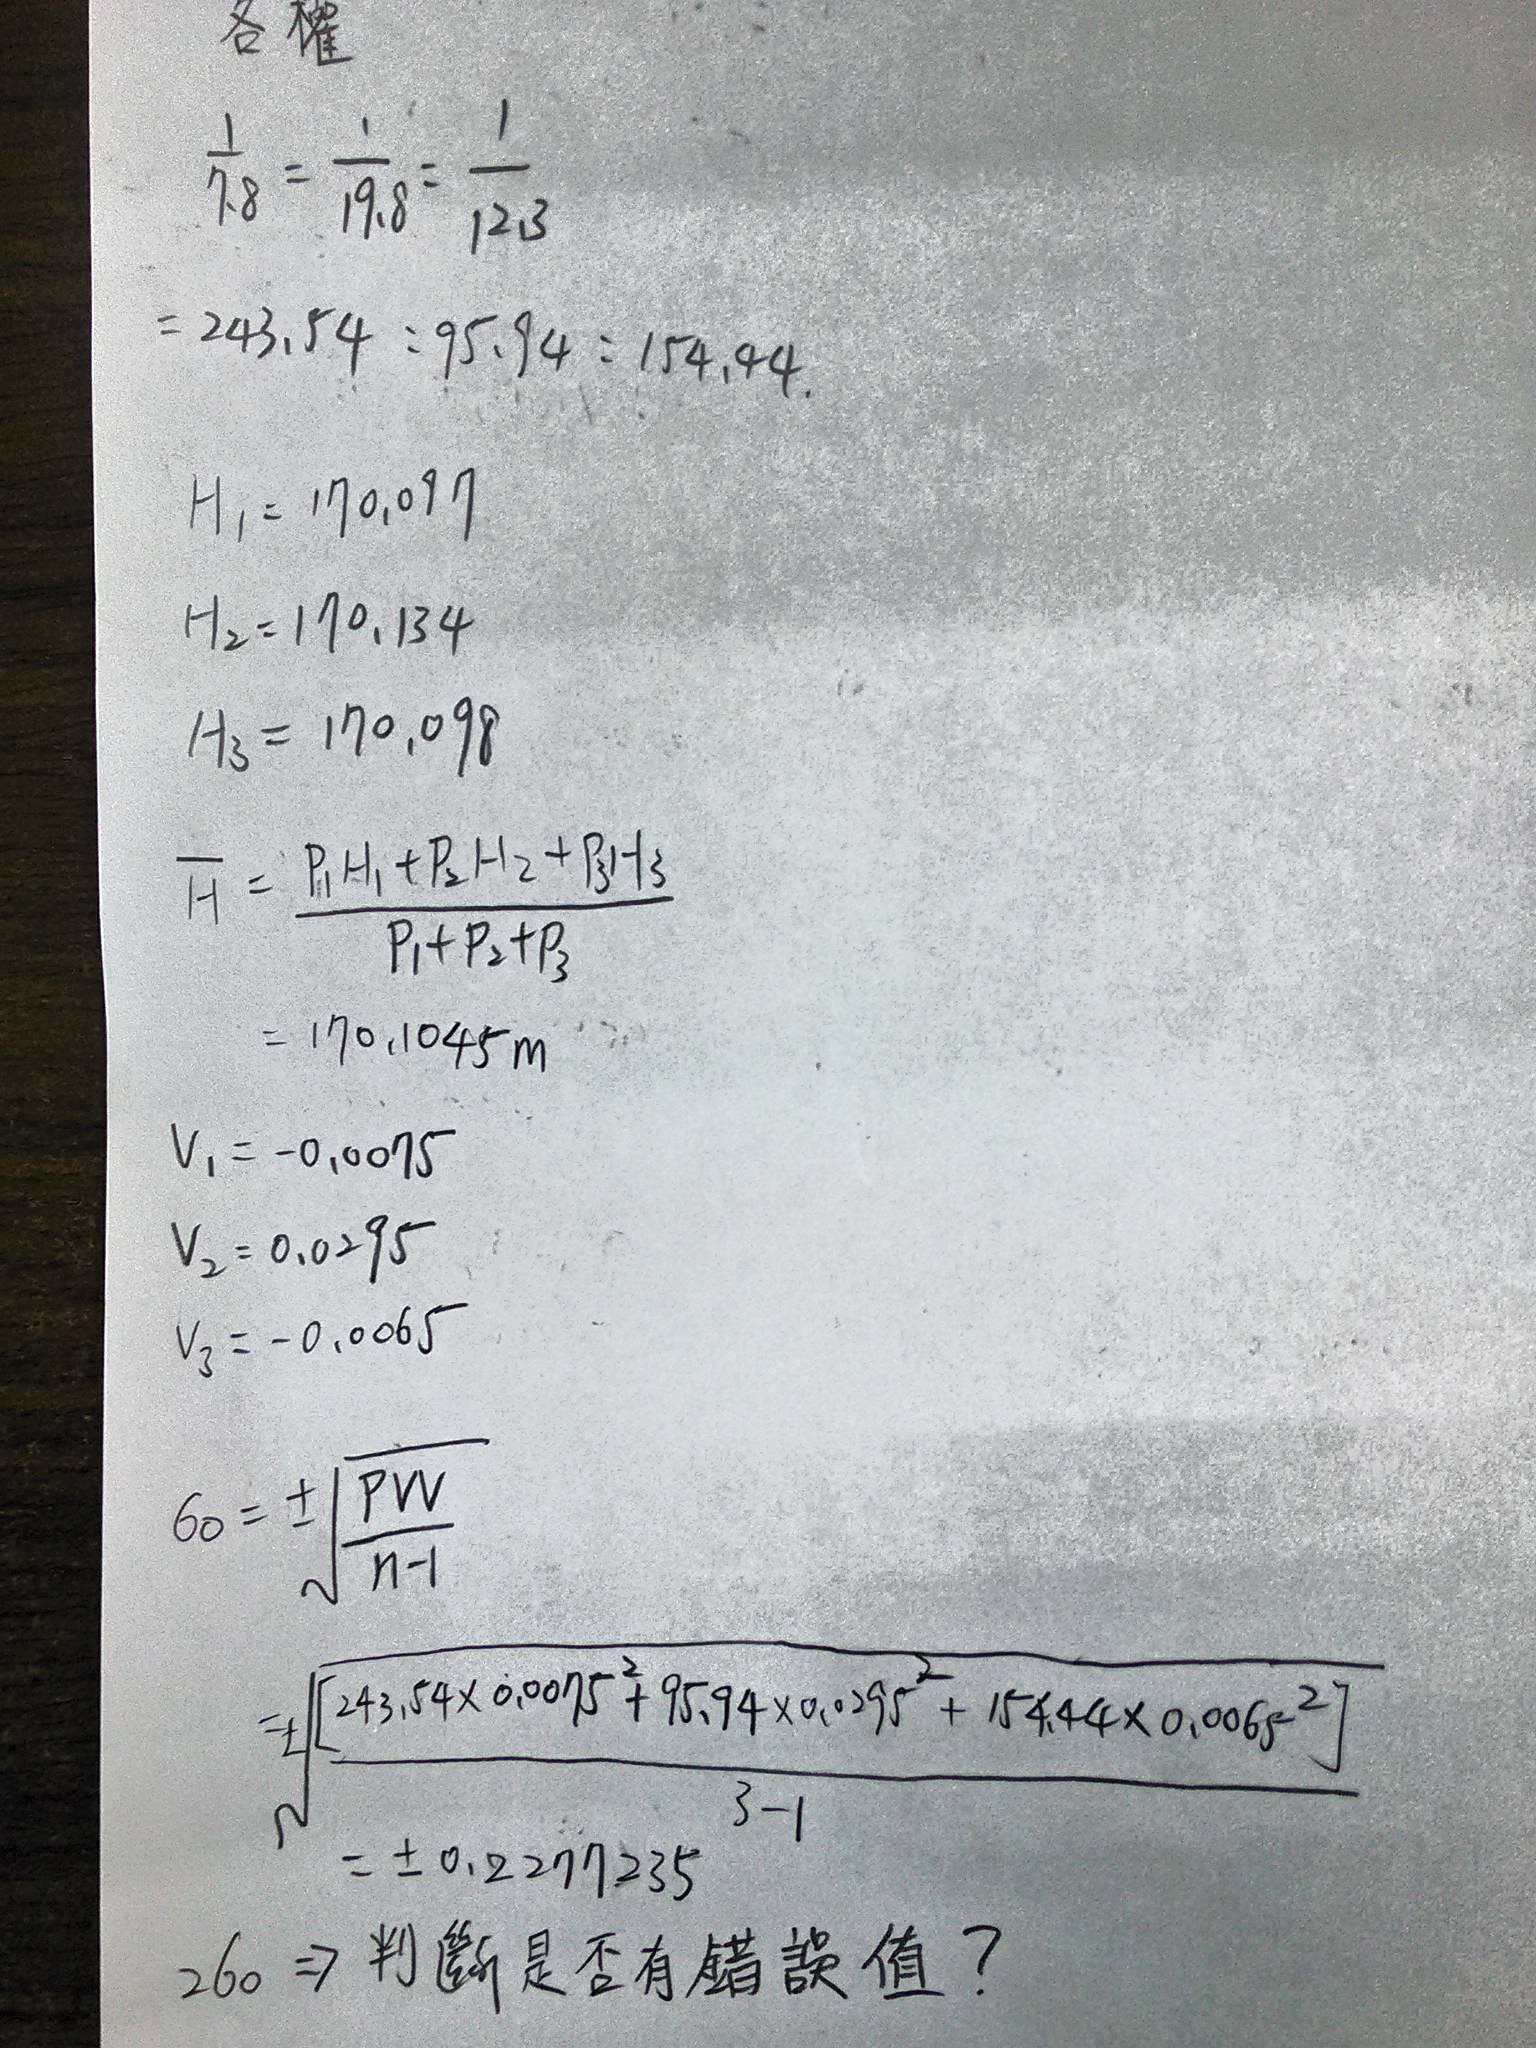 各權
1/7.8 = 1/19.8 = 1/12.3
= 243.54 : 95.94 : 154.44.
H₁ = 170.097
H₂ = 170.134
H₃ = 170.098
H̅ = (P₁H₁ + P₂H₂ + P₃H₃)/(P₁ + P₂ + P₃)
= 170.1045m
V₁ = -0.0075
V₂ = 0.0295
V₃ = -0.0065
6o = ±√(PVV/(n-1))
= ±√([243.54 × 0.0075² + 95.94 × 0.0295² + 154.44 × 0.0065²]/(3-1))
= ± 0.2277235
26o ⇒ 判斷是否有錯誤值?